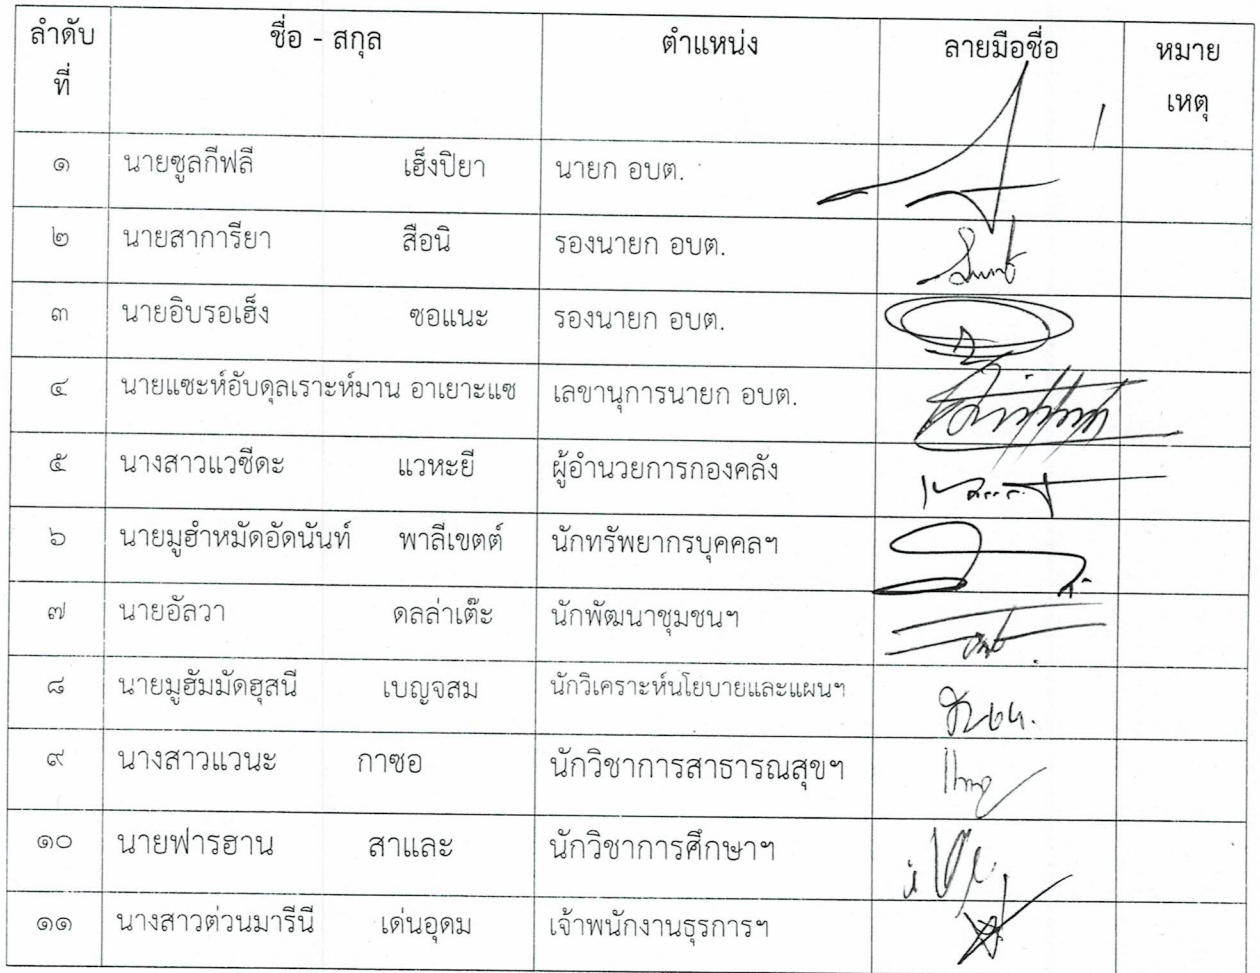 ลำดับที่ ชื่อ - สกุล ตำแหน่ง ลายมือชื่อ หมายเหตุ
๑ นายซูลกีฟลี เฮ็งปิยา นายก อบต.
๒ นายสาการียา สือนิ รองนายก อบต.
๓ นายอิบรอเฮ็ง ซอแนะ รองนายก อบต.
๔ นายแซะห์อับดุลเราะห์มาน อาเยาะแซ เลขานุการนายก อบต.
๕ นางสาวแวซีดะ แวหะยี ผู้อำนวยการกองคลัง
๖ นายมูฮำหมัดอัดนันท์ พาลีเขตต์ นักทรัพยากรบุคคลฯ
๗ นายอัลวา ดลล่าเต๊ะ นักพัฒนาชุมชนฯ
๘ นายมูฮัมมัดฮุสนี เบญจสม นักวิเคราะห์นโยบายและแผนฯ
๙ นางสาวแวนะ กาซอ นักวิชาการสาธารณสุขฯ
๑๐ นายฟารฮาน สาและ นักวิชาการศึกษาฯ
๑๑ นางสาวต่วนมารีนี เด่นอุดม เจ้าพนักงานธุรการฯ